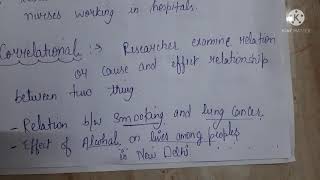 nurses working in hospitals.
Correlational :→ Researcher examine relation
or cause and effect relationship
between two thing
- Relation b/w smoking and lung cancer.
- Effect of Alcohal on lives among peoples
in New Delhi